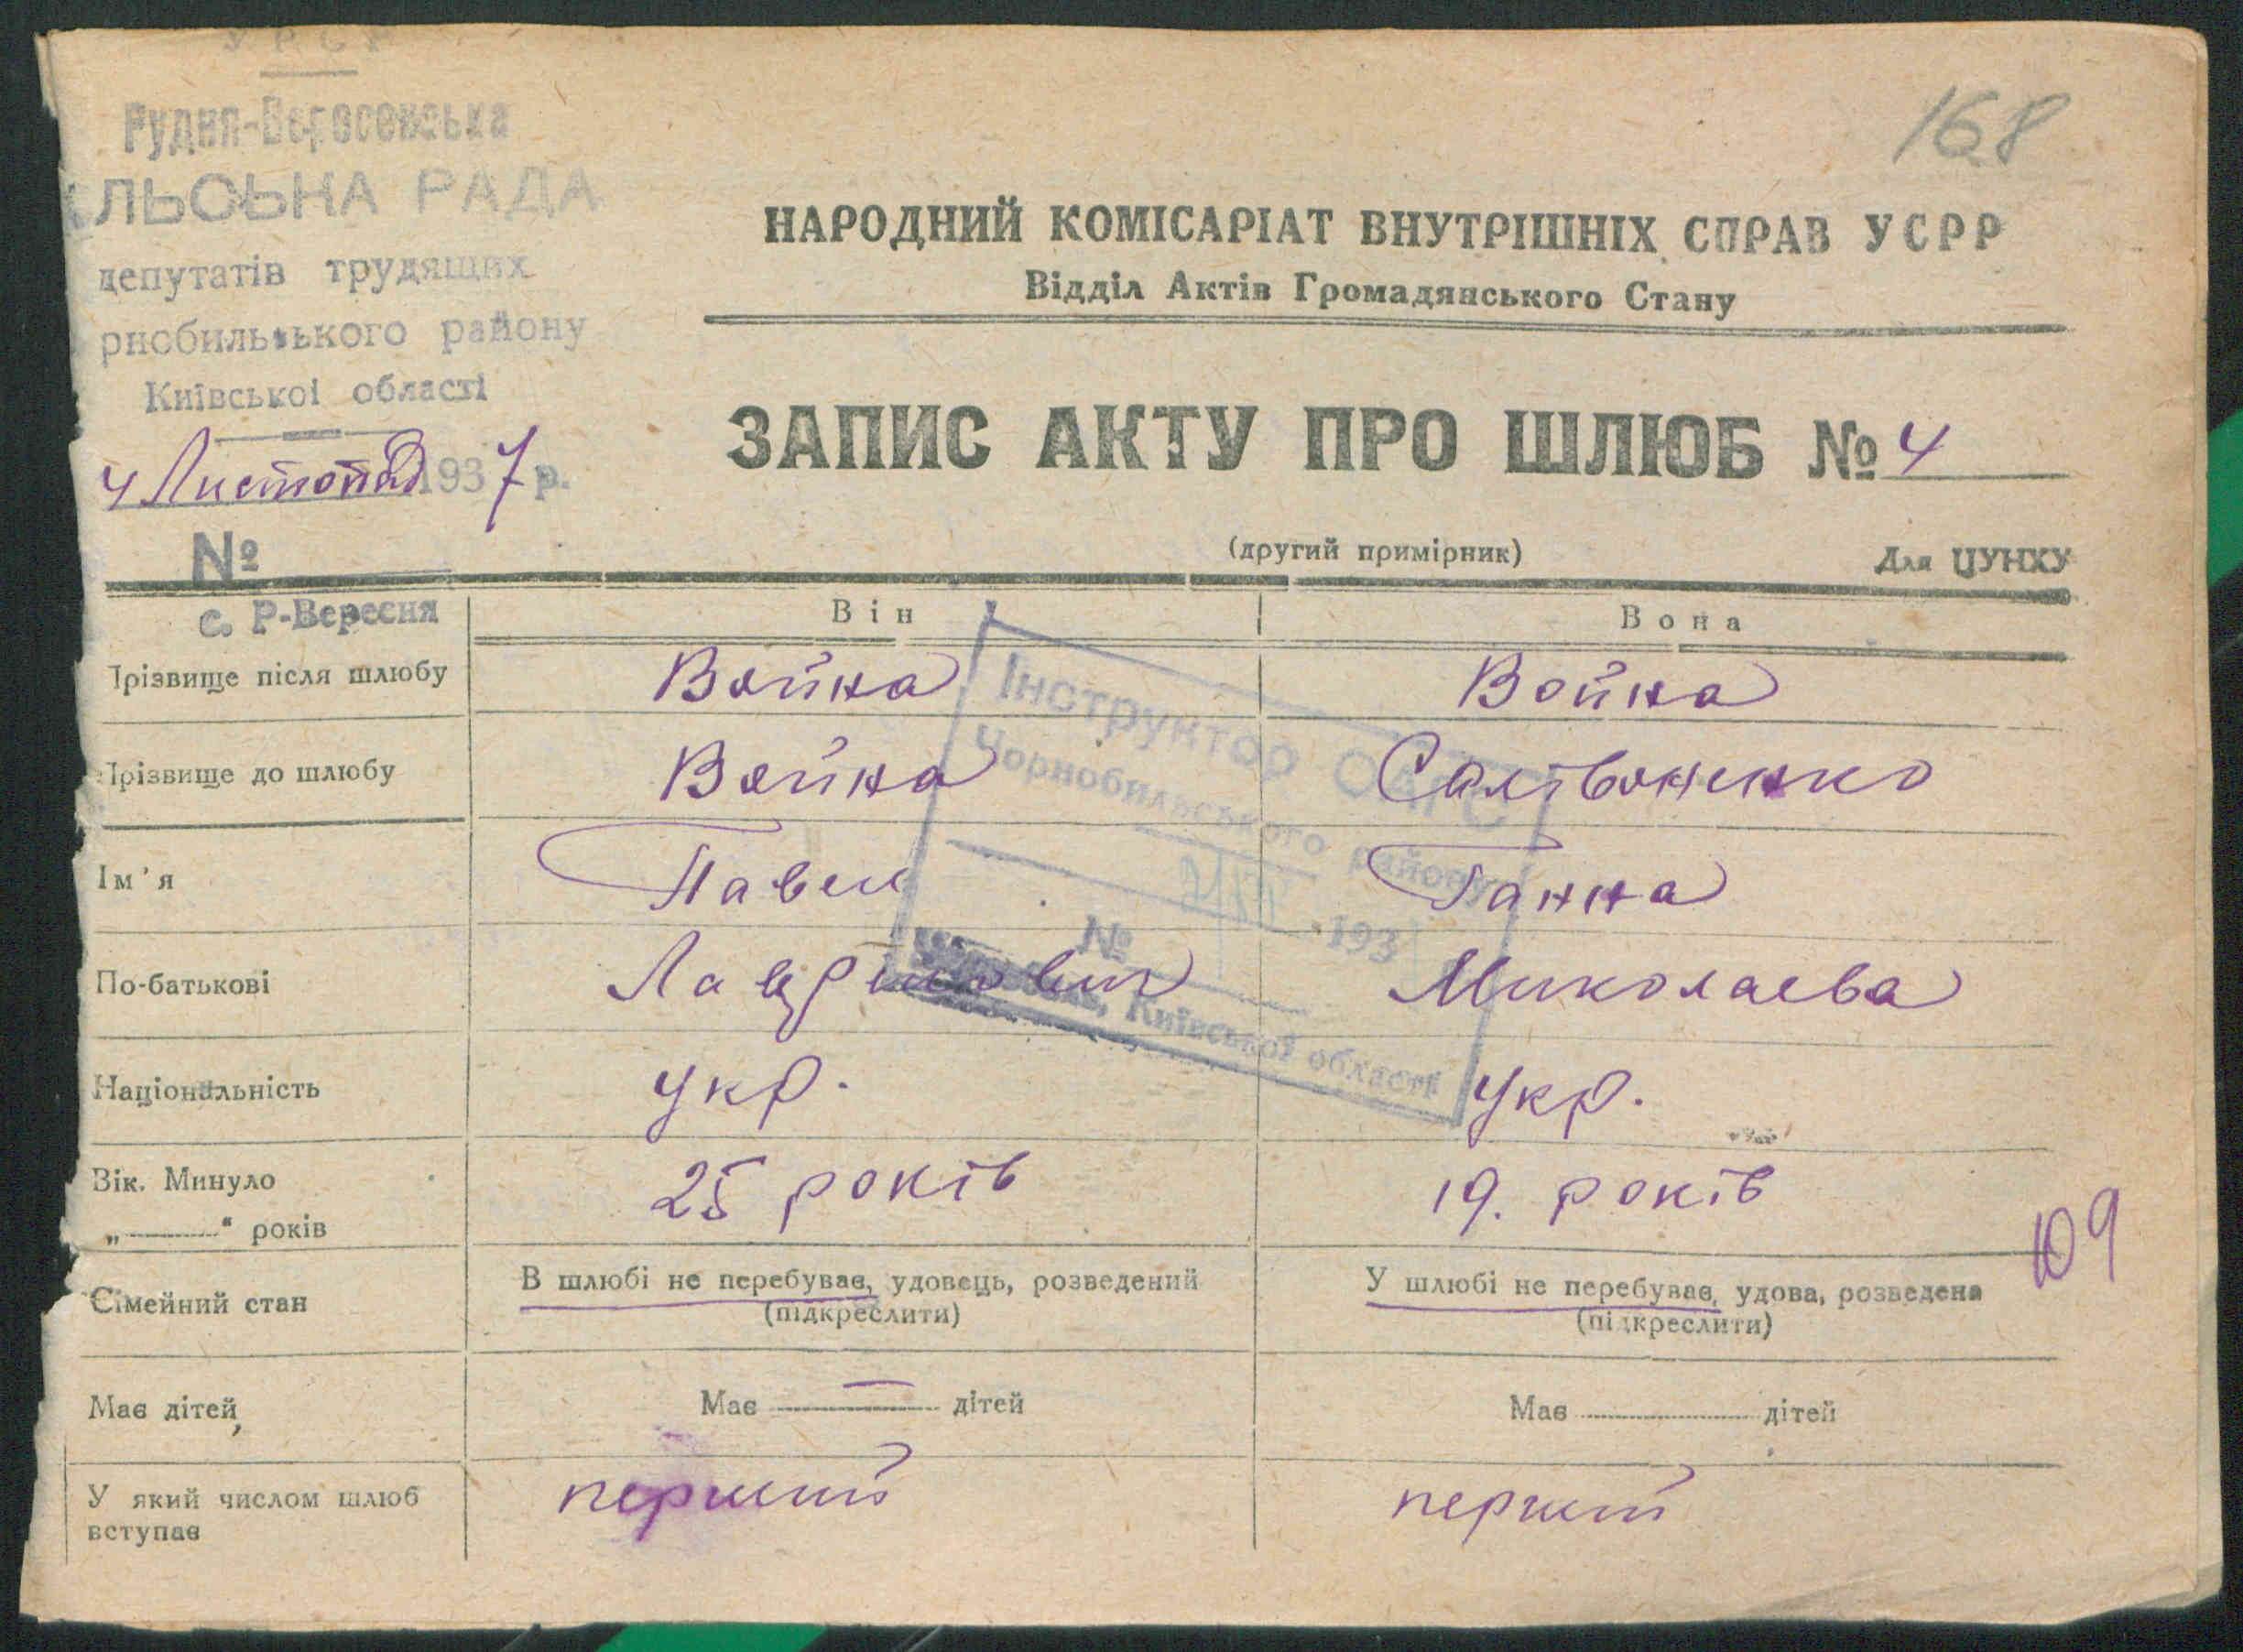 УРСР
168
Рудня-Вересенська
ІЛЬСЬКА РАДА
депутатів трудящих
рнобильського району
Київської області
4 Листопад 1937 р.
№
с. Р-Вересня
НАРОДНИЙ КОМІСАРІАТ ВНУТРІШНІХ СПРАВ УСРР
Відділ Актів Громадянського Стану
ЗАПИС АКТУ ПРО ШЛЮБ № 4
(другий примірник)
Для ЦУНХУ
Він
Вона
Прізвище після шлюбу
Война
Война
Прізвище до шлюбу
Война
Ім'я
Павел
Ганна
По-батькові
Миколаева
Національність
Укр.
Укр.
Вік. Минуло
„ “ років
25 років
19. років
109
Сімейний стан
В шлюбі не перебував, удовець, розведений
(підкреслити)
У шлюбі не перебував, удова, розведена
(підкреслити)
Має дітей
Має — дітей
Має дітей
У який числом шлюб
вступає
перший
перший
Інструктор ОАГС
Чорнобильського району
193
№
Київської області